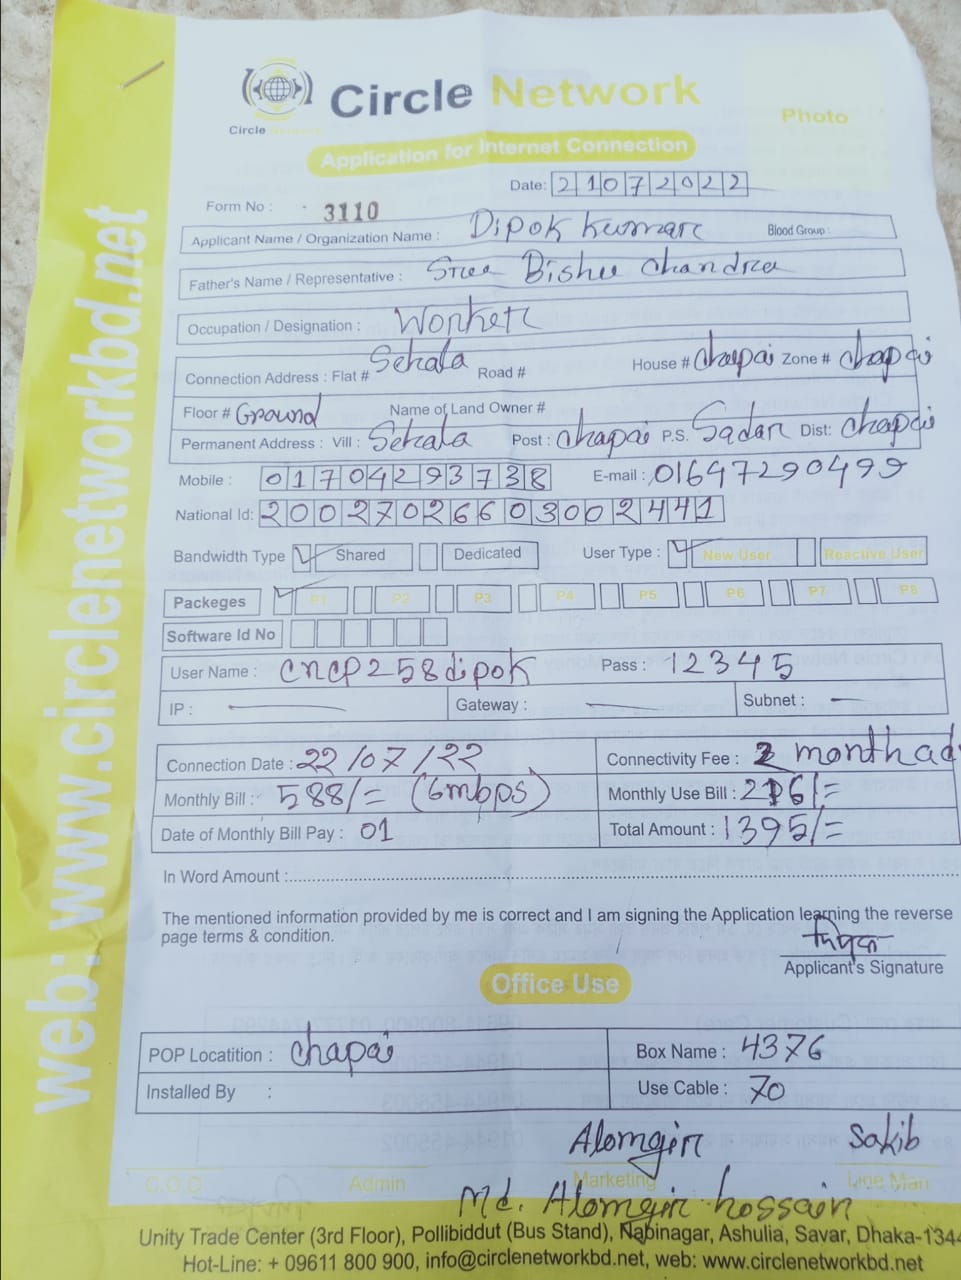 Circle Network
Circle Network
Photo
Application for Internet Connection
Date: 21072022
Form No : 3110
Applicant Name / Organization Name : Dipok Kumar Blood Group :
Father's Name / Representative : Sree Bishu Chandra
Occupation / Designation : Worker
Connection Address : Flat # Sekala Road # House # Chapai Zone # Chapai
Floor # Ground Name of Land Owner #
Permanent Address : Vill : Sekala Post : Chapai P.S. Sadar Dist: Chapai
Mobile : 01704293738 E-mail : 01647290499
National Id: 20027026603002441
Bandwidth Type Shared Dedicated User Type : New User Reactive User
Packeges P1 P2 P3 P4 P5 P6 P7 P8
Software Id No
User Name : cncp258dipok Pass : 12345
IP : — Gateway : — Subnet : —
Connection Date : 22/07/22 Connectivity Fee : 2 month ad
Monthly Bill : 588/= (6mbps) Monthly Use Bill : 216/=
Date of Monthly Bill Pay : 01 Total Amount : 1395/=
In Word Amount :
The mentioned information provided by me is correct and I am signing the Application learning the reverse
page terms & condition.
Applicant's Signature
Office Use
POP Locatition : Chapai Box Name : 4376
Installed By : Use Cable : 70
Alomgir Sakib
C.O.O Admin Marketing Line Man
Md. Alomgir hossain
Unity Trade Center (3rd Floor), Pollibiddut (Bus Stand), Nabinagar, Ashulia, Savar, Dhaka-1344
Hot-Line: + 09611 800 900, info@circlenetworkbd.net, web: www.circlenetworkbd.net
web: www.circlenetworkbd.net